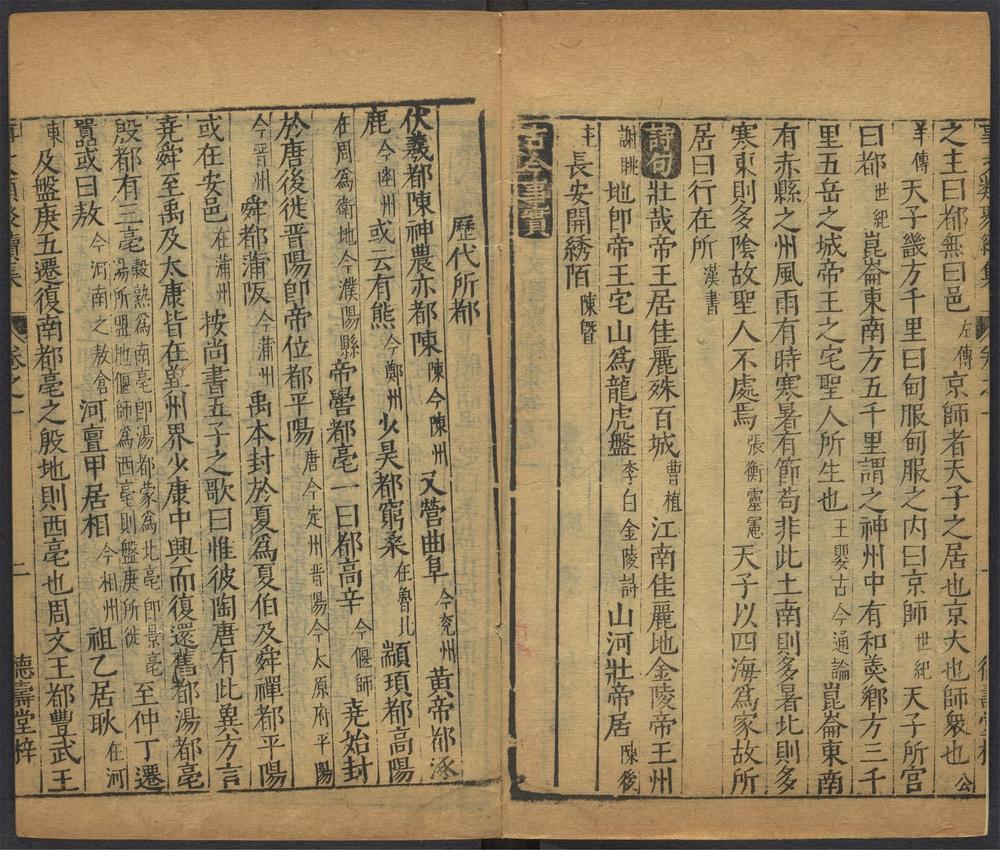 之主曰都無曰邑左傳京師者天子之居也京大也師衆也公
羊傳天子畿方千里曰甸服甸服之内曰京師世紀天子所宫
曰都世紀崑崙東南方五千里謂之神州中有和羮鄉方三千
里五岳之城帝王之宅聖人所生也王嬰古今通論崑崙東南
有赤縣之州風雨有時寒暑有節苟非此土南則多暑北則多
寒東則多陰故聖人不處焉張衡靈憲天子以四海爲家故所
居曰行在所漢書
詩句壯哉帝王居佳麗殊百城曹植江南佳麗地金陵帝王州
謝眺地即帝王宅山爲龍虎盤李白金陵詩山河壯帝居陳後
主長安開綉陌陳暨
古今事實
歷代所都
伏羲都陳神農亦都陳陳今陳州又營曲阜今兖州黄帝都涿
鹿今幽州或云有熊今鄭州少昊都窮桑在魯北顓頊都高陽
在周爲衛地今濮陽縣帝嚳都亳一曰都高辛今偃師堯始封
於唐後徙晋陽即帝位都平陽唐今定州晋陽今太原府平陽
今晋州舜都蒲阪今蒲州禹本封於夏爲夏伯及舜禪都平陽
或在安邑在蒲州按尚書五子之歌曰惟彼陶唐有此兾方言
堯舜至禹及太康皆在兾州界少康中興而復還舊都湯都亳
殷都有三亳穀熟爲南亳即湯都蒙爲北亳即景亳湯所盟地偃師爲西亳則盤庚所徙至仲丁遷
囂或曰敖今河南之敖倉河亶甲居相今相州祖乙居耿在河
東及盤庚五遷復南都亳之殷地則西亳也周文王都豐武王
卷之一
二
德壽堂梓